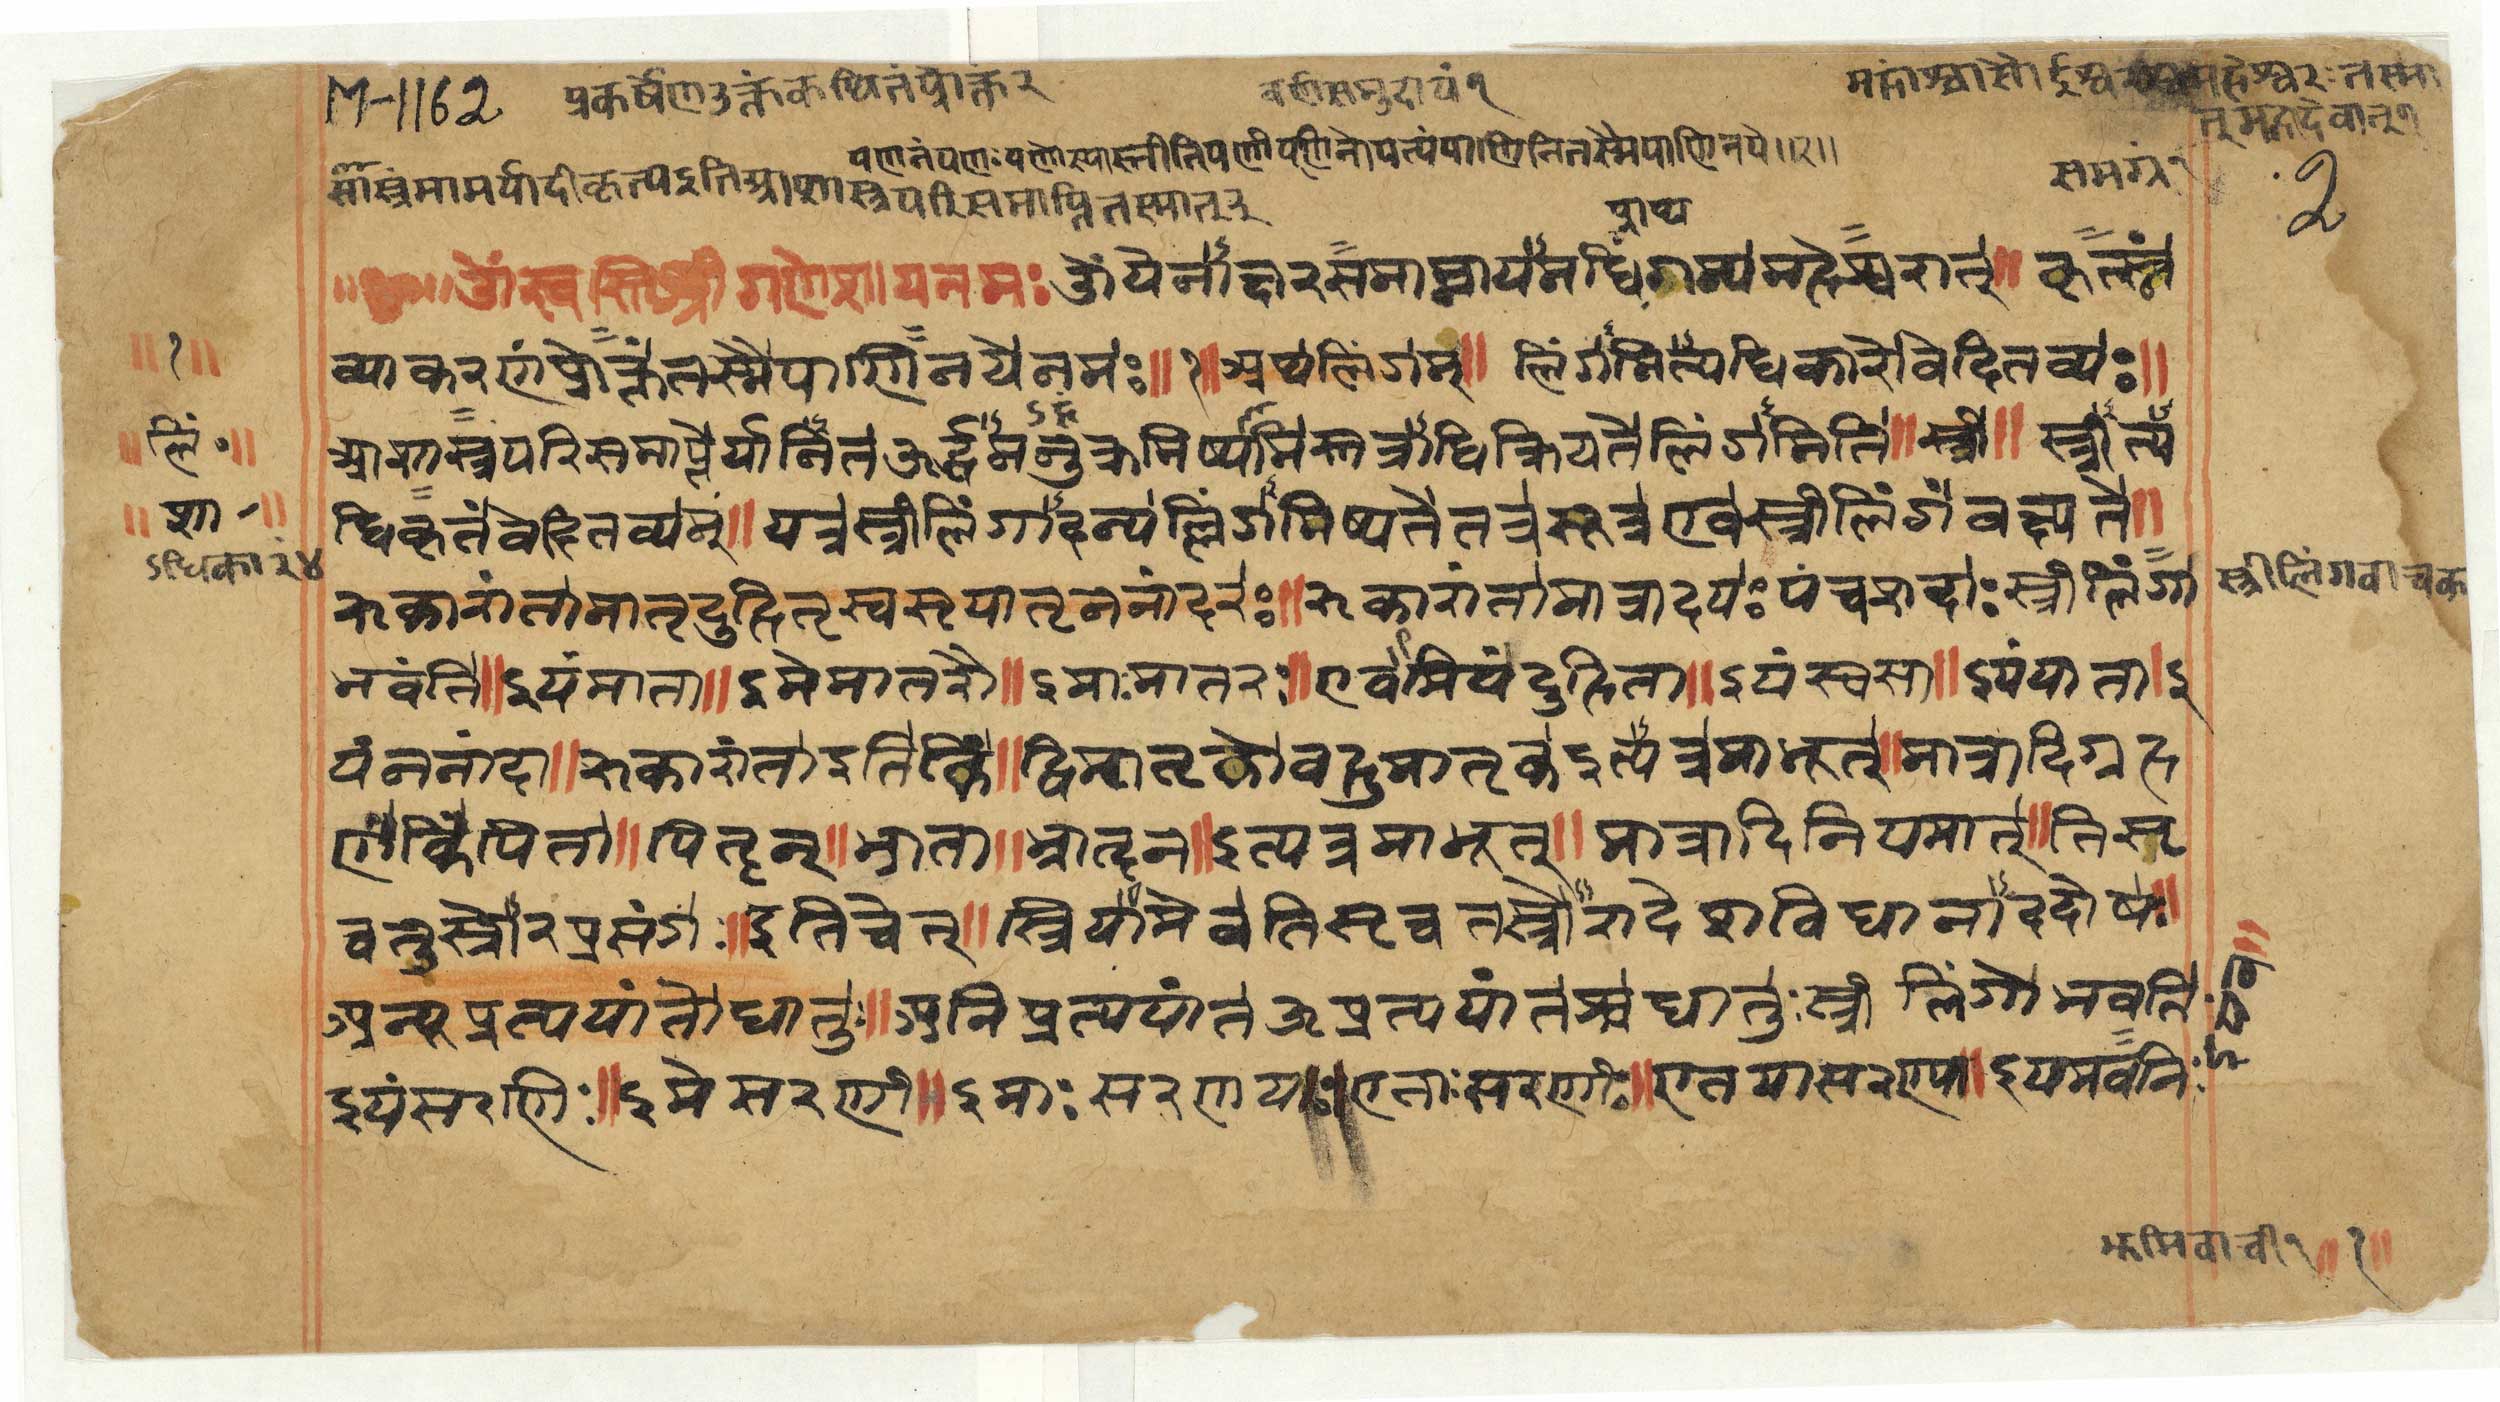 M-1162 प्रकर्षेण उक्तं कथितं प्रोक्तं २ वर्णसमुदायं १ महांश्चासौ ईश्वरश्च महेश्वरः तस्मा
त् महादेवात् १
पणनं पणः पणोस्यास्तीति पणी पणिनोपत्यं पाणिनि तस्मै पाणिनये ॥२॥
समग्रं २
मर्यादीकृत्य इति आशास्त्रपरिसमाप्ति तस्मात्
प्राप्य
२
॥ ॥ ॐ स्वस्ति श्री गणेशाय नमः ॐ येनाक्षरसमाम्नायमधिगम्य महेश्वरात् ॥ कृत्स्नं
व्याकरणं प्रोक्तं तस्मै पाणिनये नमः ॥ १ ॥ अथ लिंगम् ॥ लिंगमित्यधिकारो वेदितव्यः ॥
आशास्त्रपरिसमाप्तेर्यानित ऊर्द्ध्वमनुक्रमिष्यामस्तत्राधिक्रियते लिंगमिति ॥ स्त्री ॥ स्त्रीत्य
धिकृतं वेदितव्यम् ॥ यत्र स्त्रीलिंगादन्यल्लिंगमिष्यते तत्र सूत्र एव स्त्रीलिंगं वक्ष्यते ॥
ऋकारांता मातृदुहितृस्वसृयातृननांदरः ॥ ऋकारांता मात्रादयः पंच शब्दाः स्त्रीलिंगा
भवंति ॥ इयं माता ॥ इमे मातरौ ॥ इमाः मातरः ॥ एवमियं दुहिता ॥ इयं स्वसा ॥ इयं याता । इ
यं ननांदा ॥ ऋकारांता इति किं ॥ द्विमातृको बहुमातृक इत्यत्र मा भूत् ॥ मात्रादिग्रह
णं किं पिता ॥ पितृन् ॥ भ्राता ॥ भ्रातृन ॥ इत्यत्र मा भूत् ॥ मात्रादिनियमात् ॥ तिसृ
चतुस्रोरप्रसंगः ॥ इति चेत् ॥ स्त्रियामेव तिसृचतस्रोरादेशविधानाददोषः ॥
अन्यूप्रत्ययांतो धातुः ॥ अनिप्रत्ययांत ऊप्रत्ययांतश्च धातुः स्त्रीलिंगो भवति
इयं सरणिः ॥ इमे सरणी ॥ इमाः सरणयः ॥ एताः सरणीः ॥ एतया सरण्या ॥ इयमवनिः
॥ १ ॥
॥ लिं॰ ॥
॥ शा ॥
ऽधिकारः ४
स्त्रीलिंगवाचक
भूमिवाची १ ॥ १ ॥